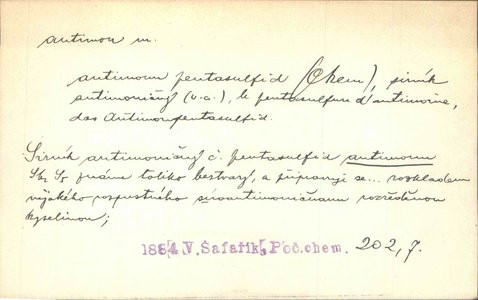 antimon m.
antimonu pentasulfid (Chem), sirník
antimoničný (v.a.), le pentasulfure d'antimoine,
das Antimonpentasulfid.
Sirník antimoničný č. pentasulfid antimonu
Sb2 S5 známe toliko beztvarý, a připravuje se... rozkladem
nějakého rozpustného siroantimoničnanu rozředěnou
kyselinou;
1884 V. Šafařík, Poč. chem. 202, 7.